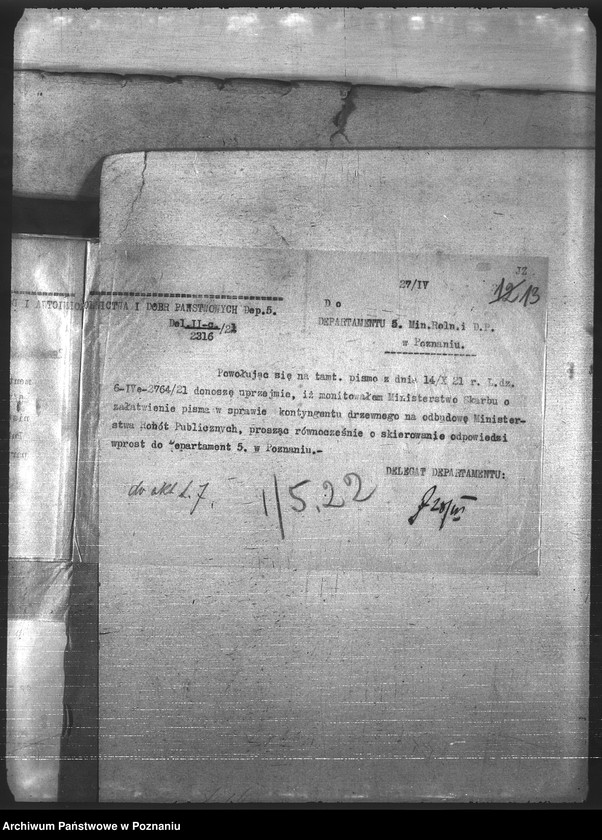 27/IV
JZ
12 13
I DOBR PAŃSTWOWYCH Dep.5.
Del.II-c. /21
2316
Do
DEPARTAMENTU 5. Min.Roln.i D.P.
w Poznaniu.
Powołując się na tamt. pismo z dnia 14/X 21 r. L.dz.
6-IVe-2764/21 donoszę uprzejmie, iż monitowałem Ministerstwo Skarbu o
załatwienie pisma w sprawie kontyngentu drzewnego na odbudowę Minister-
stwa Robót Publicznych, prosząc równocześnie o skierowanie odpowiedzi
wprost do Departament 5. w Poznaniu.-
DELEGAT DEPARTAMENTU:
do akt L. 7.
1/5.22
Archiwum Państwowe w Poznaniu